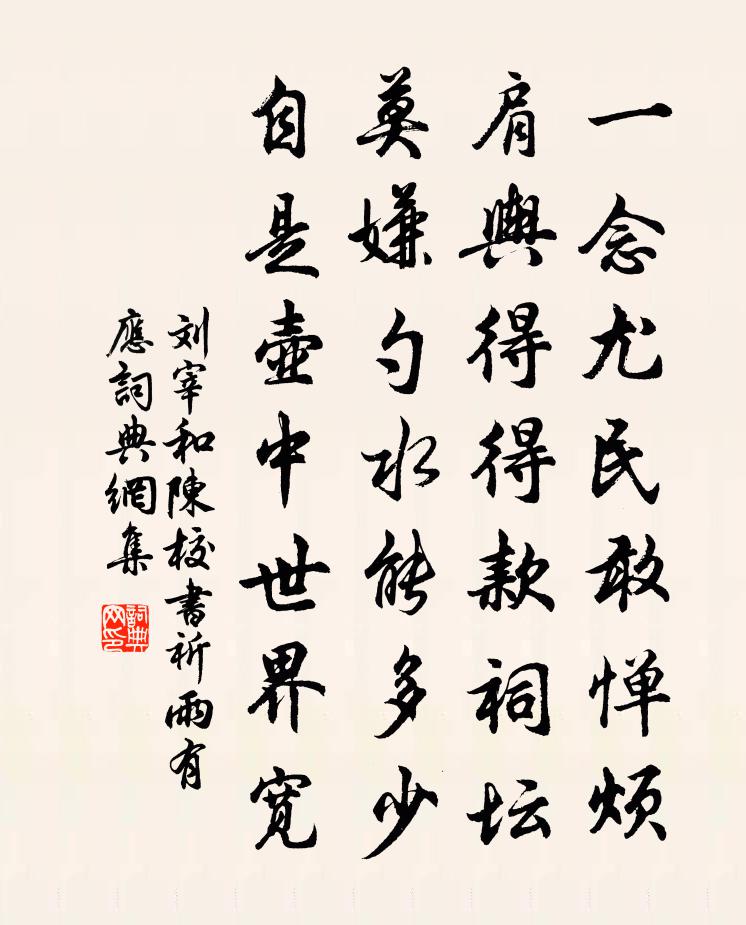 一念尤民敢惮烦
肩輿得得款祠坛
莫嫌勺水能多少
自是壺中世界寬
刘宰和陳校書祈雨有
應詞典網集
詞典
网印